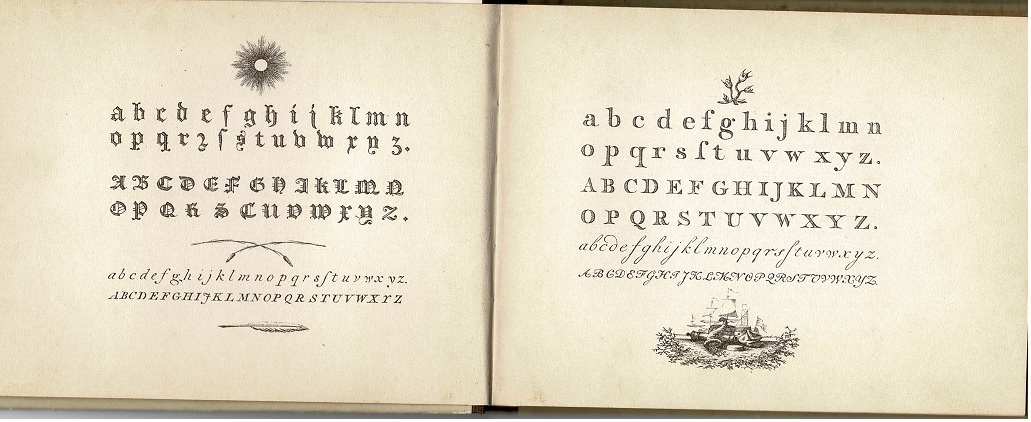 a b c d e f g h i j k l m n
o p q r ꝛ ſ s t u v w x y z.
A B C D E F G H I K L M N
O P Q R S T U V W X Y Z.
a b c d e f g h i j k l m n o p q r s ſ t u v w x y z.
A B C D E F G H I J K L M N O P Q R S T U V W X Y Z
a b c d e f g h i j k l m n
o p q r s ſ t u v w x y z.
A B C D E F G H I J K L M N
O P Q R S T U V W X Y Z.
a b c d e f g h i j k l m n o p q r s ſ t u v w x y z.
A B C D E F G H I J K L M N O P Q R S T U V W X Y Z.